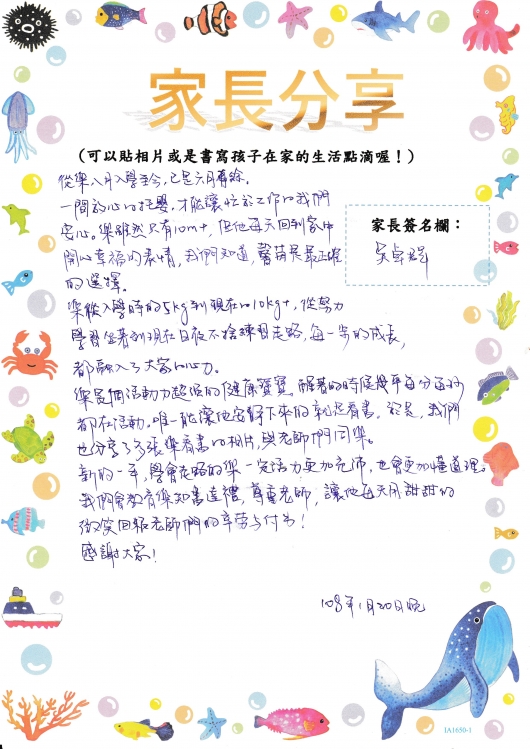 家長分享
(可以貼相片或是書寫孩子在家的生活點滴喔！)
從樂八月入學至今,已是六月有餘.
一間放心的托嬰,才能讓忙於工作的我們
安心。樂雖然只有10m+,但他每天回到家中
開心幸福的表情,我們知道,馨苗是最正確
的選擇。
家長簽名欄：
樂從入學時的5kg到現在的10kg+,從努力
學習坐著到現在日夜不捨練習走路,每一步的成長,
都融入了大家的心力。
樂是個活動力超強的健康寶寶,醒著的時候幾乎每分每秒
都在活動。唯一能讓他安靜下來的就是看書。於是,我們
也分享了3張樂看書的相片,與老師們同樂。
新的一年,學會走路的樂一定活力更加充沛,也會更加懂道理。
我們會教育樂知書達禮,尊重老師,讓他每天用甜甜的
微笑回報老師們的辛勞与付出！
感謝大家！
108年1月20日晚
IA1650-1